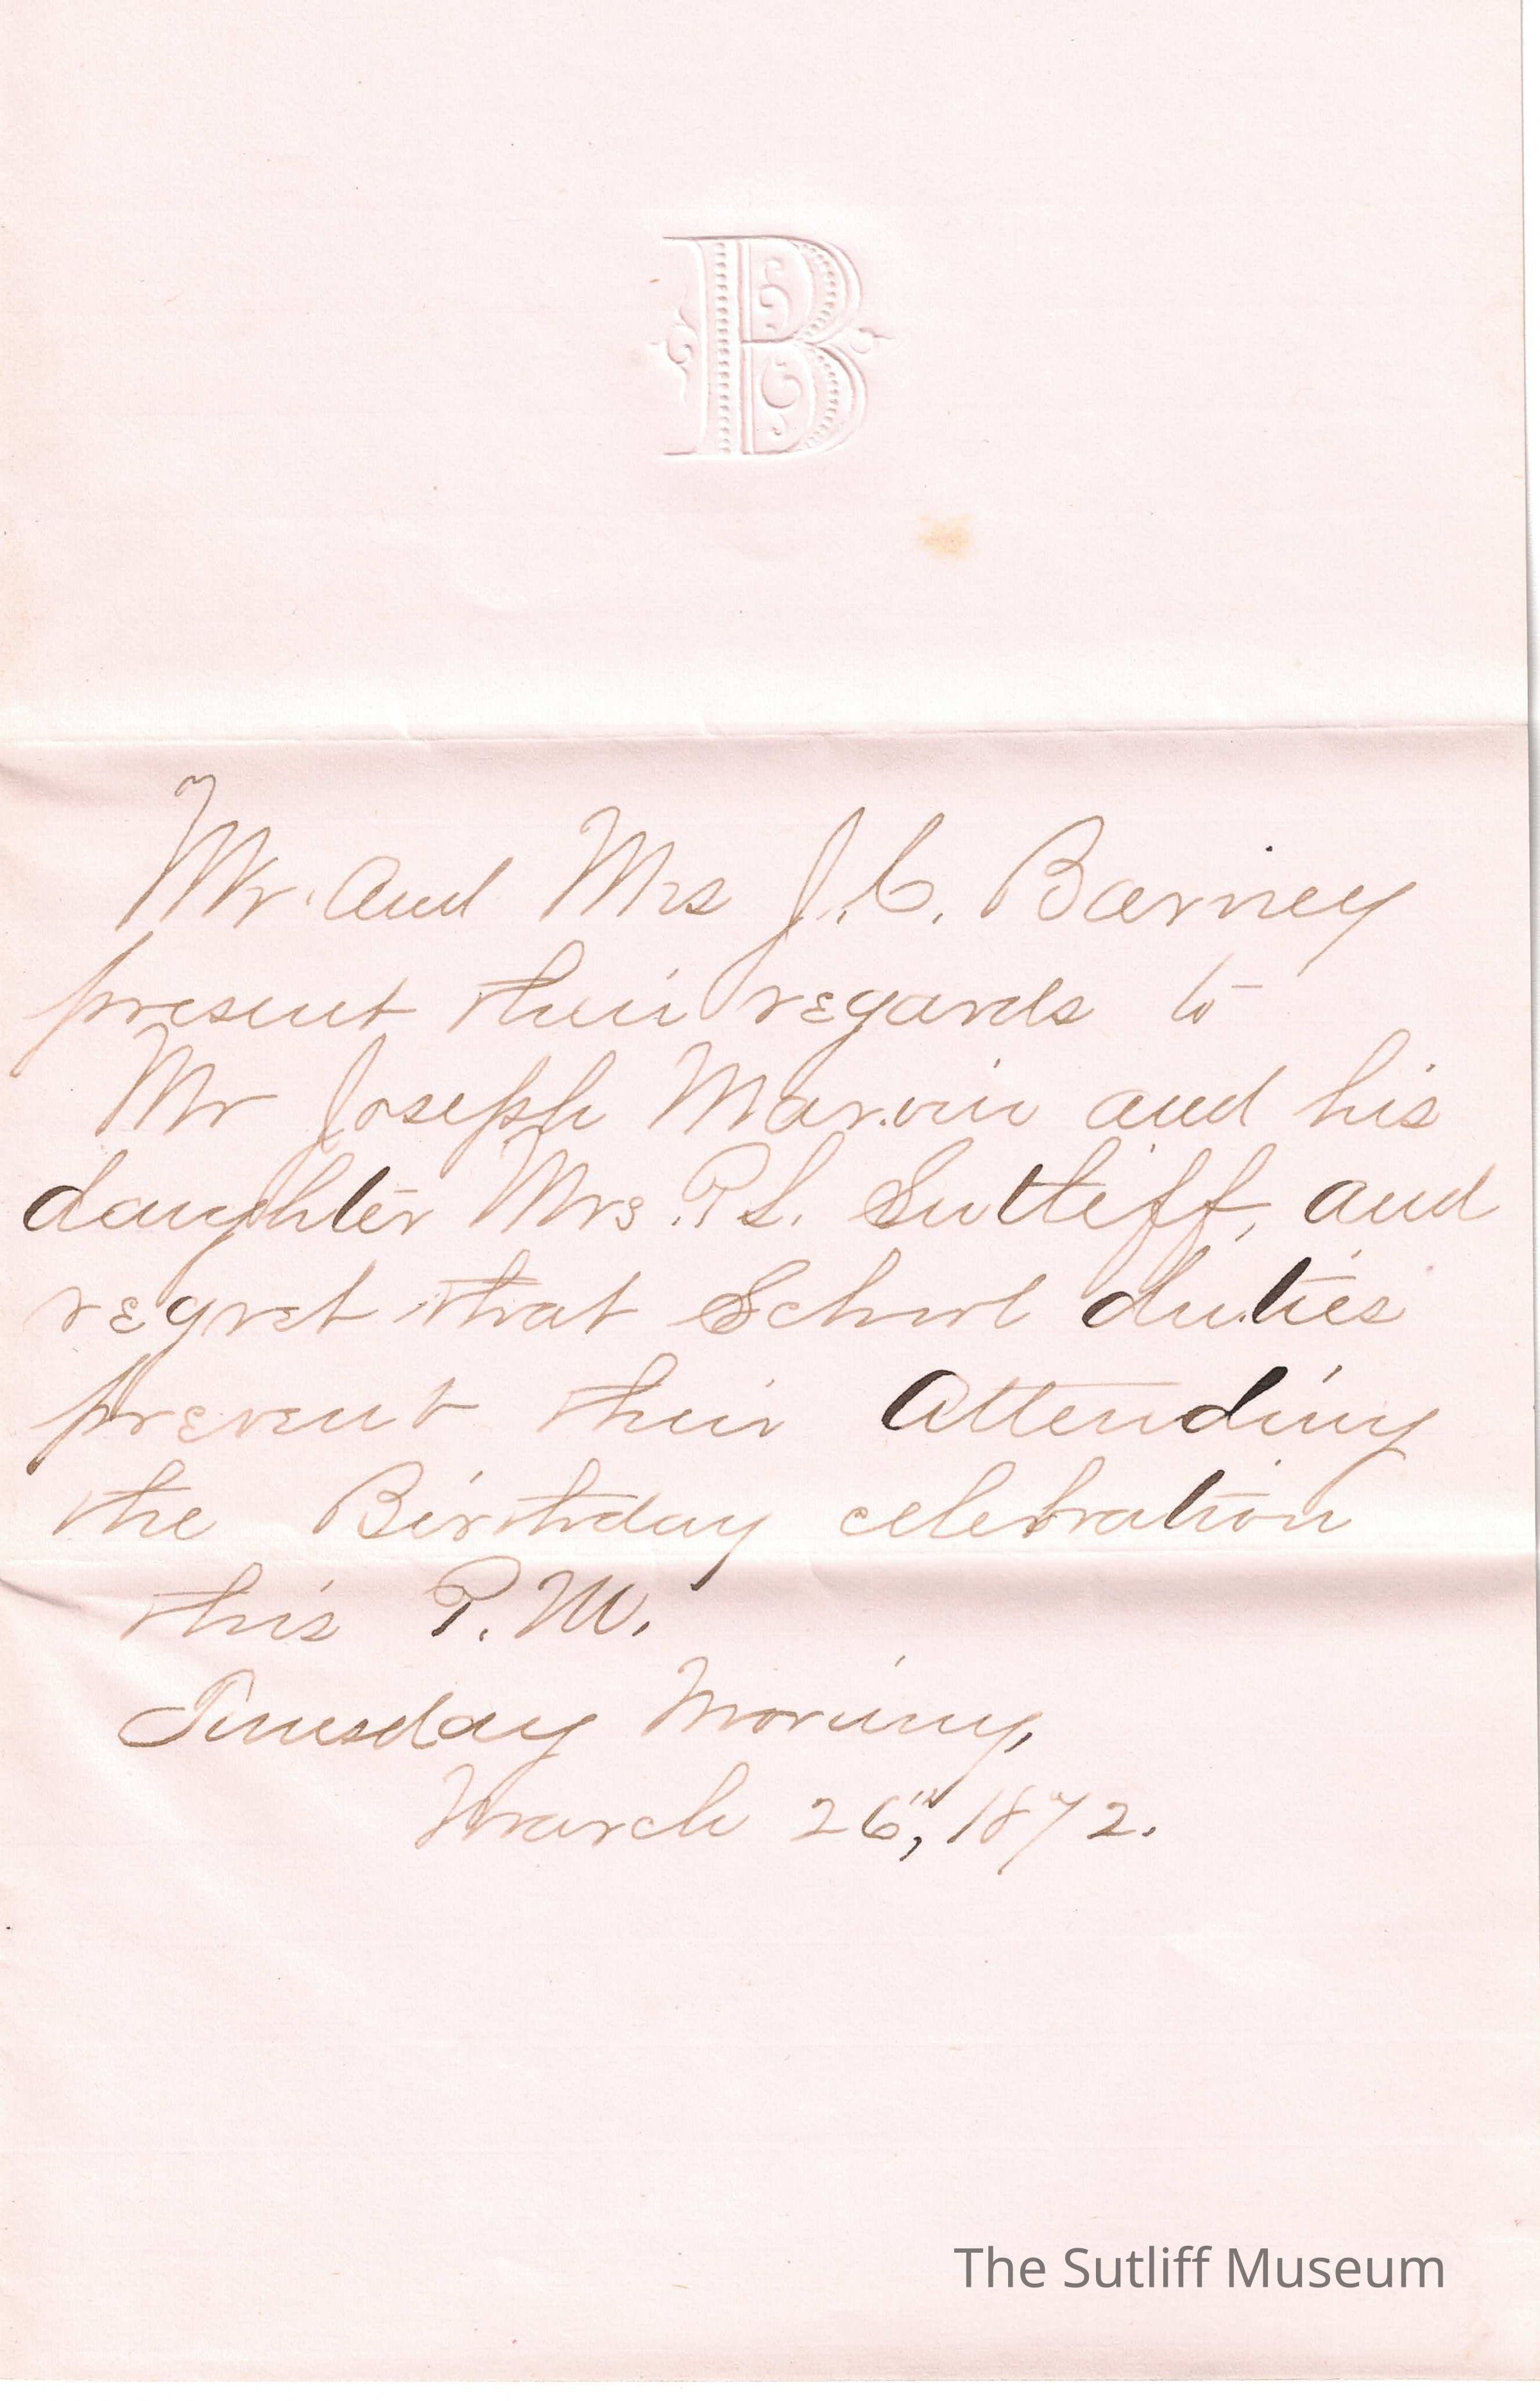 B
Mr. and Mrs J. C. Barney
present their regards to
Mr Joseph Marvin and his
daughter Mrs. P L. Sutliff, and
regret that School duties
prevent their Attending
the Birthday celebration
this P. M.
Tuesday Morning,
March 26", 1872.
The Sutliff Museum